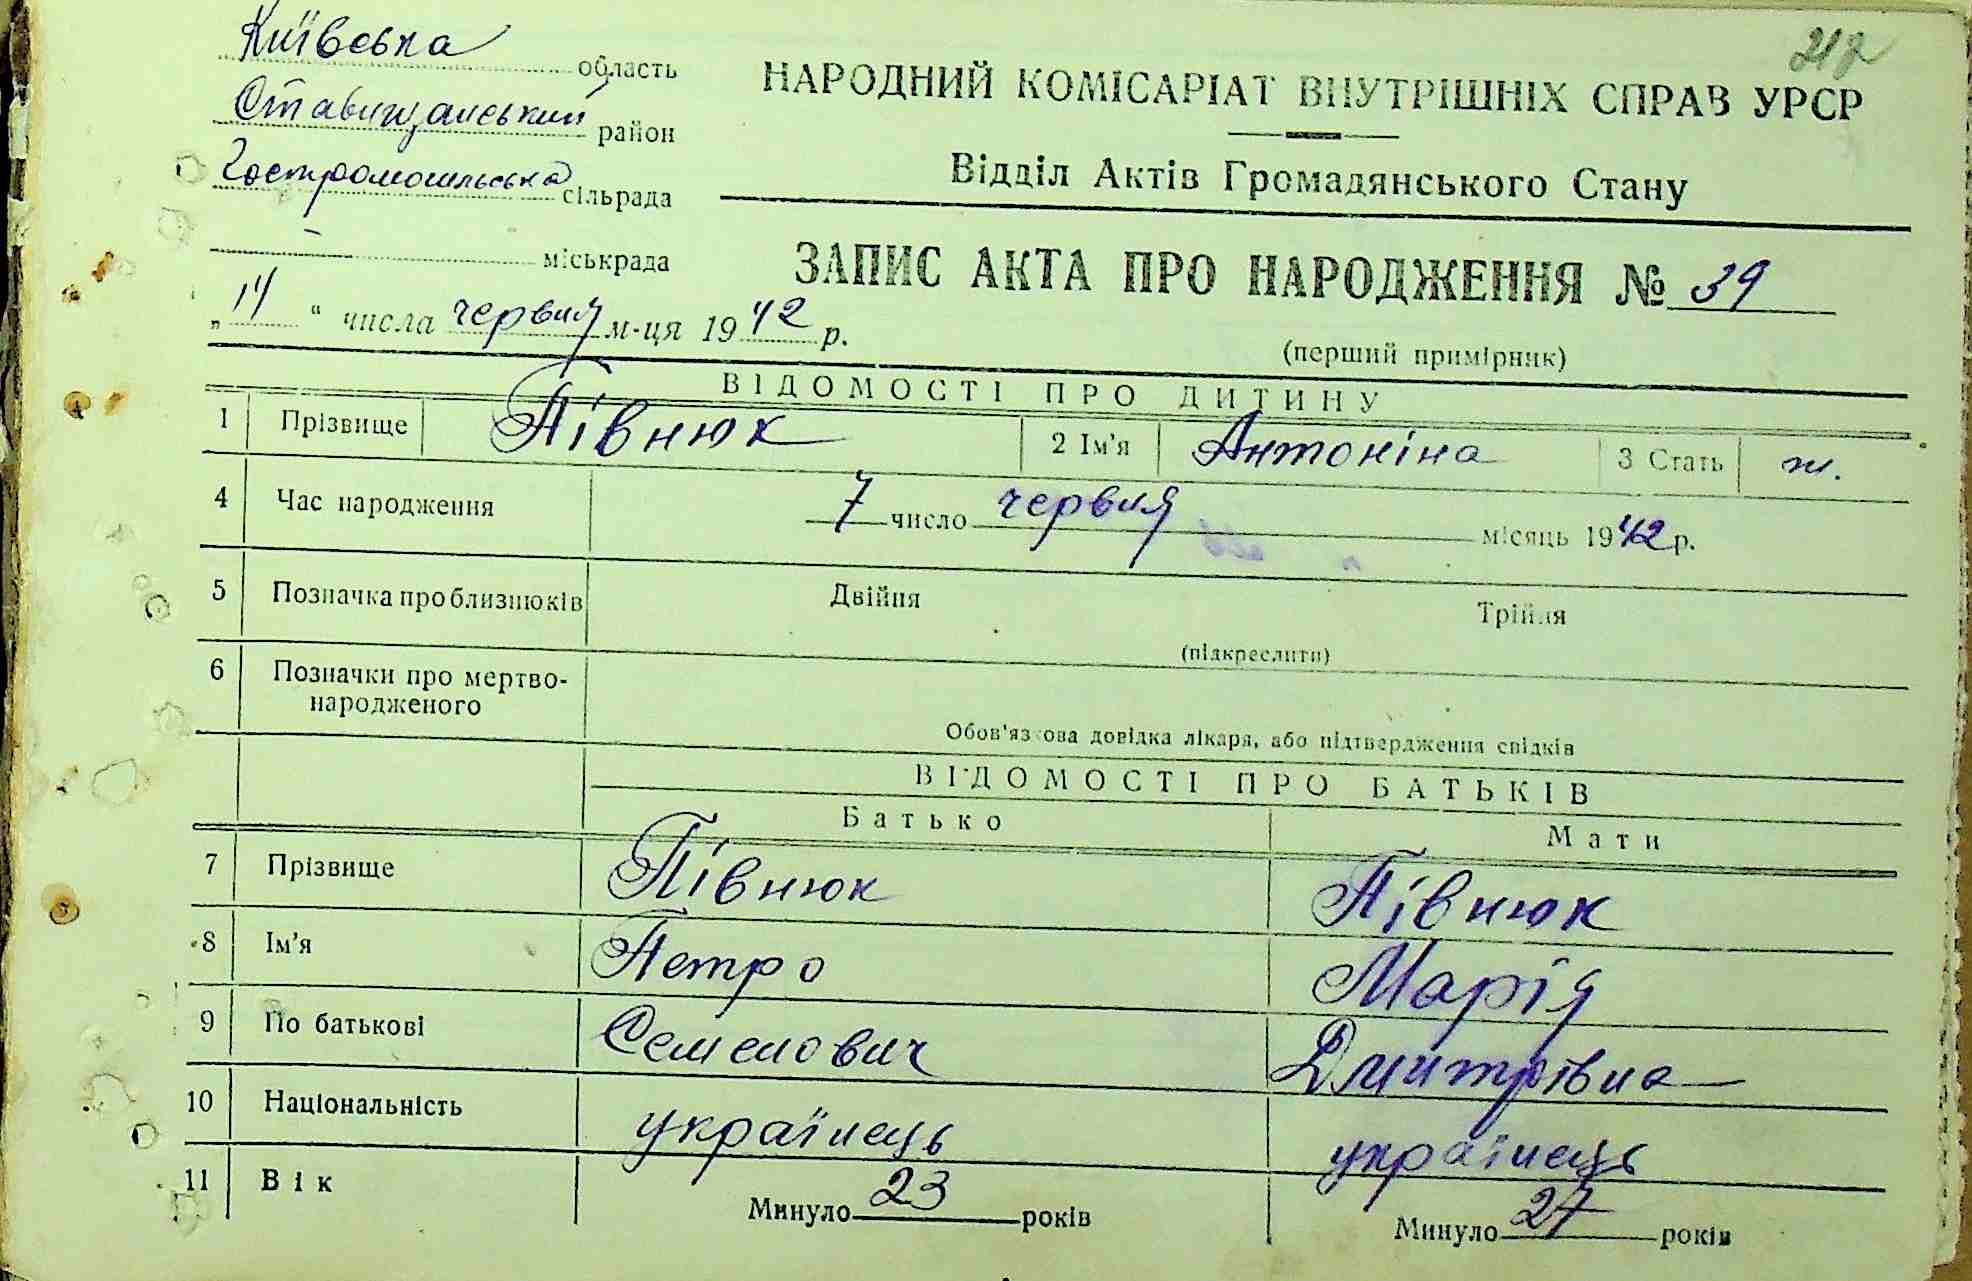 Київська область
Ставищанський район
Гостромогильська сільрада
міськрада
НАРОДНИЙ КОМІСАРІАТ ВНУТРІШНІХ СПРАВ УРСР
Відділ Актів Громадянського Стану
ЗАПИС АКТА ПРО НАРОДЖЕННЯ № 39
„ “ числа червня м-ця 1942 р.
(перший примірник)
ВІДОМОСТІ ПРО ДИТИНУ
1 Прізвище Півнюк 2 Ім'я Антоніна 3 Стать ж.
4 Час народження 7 число червня місяць 1942 р.
5 Позначка про близнюків Двійня Трійня
(підкреслити)
6 Позначки про мертво-
народженого
Обов'язкова довідка лікаря, або підтвердження свідків
ВІДОМОСТІ ПРО БАТЬКІВ
Батько Мати
7 Прізвище Півнюк Півнюк
8 Ім'я Петро Марія
9 По батькові Семенович Дмитрівна
10 Національність українець українець
11 Вік Минуло 23 років Минуло 27 років